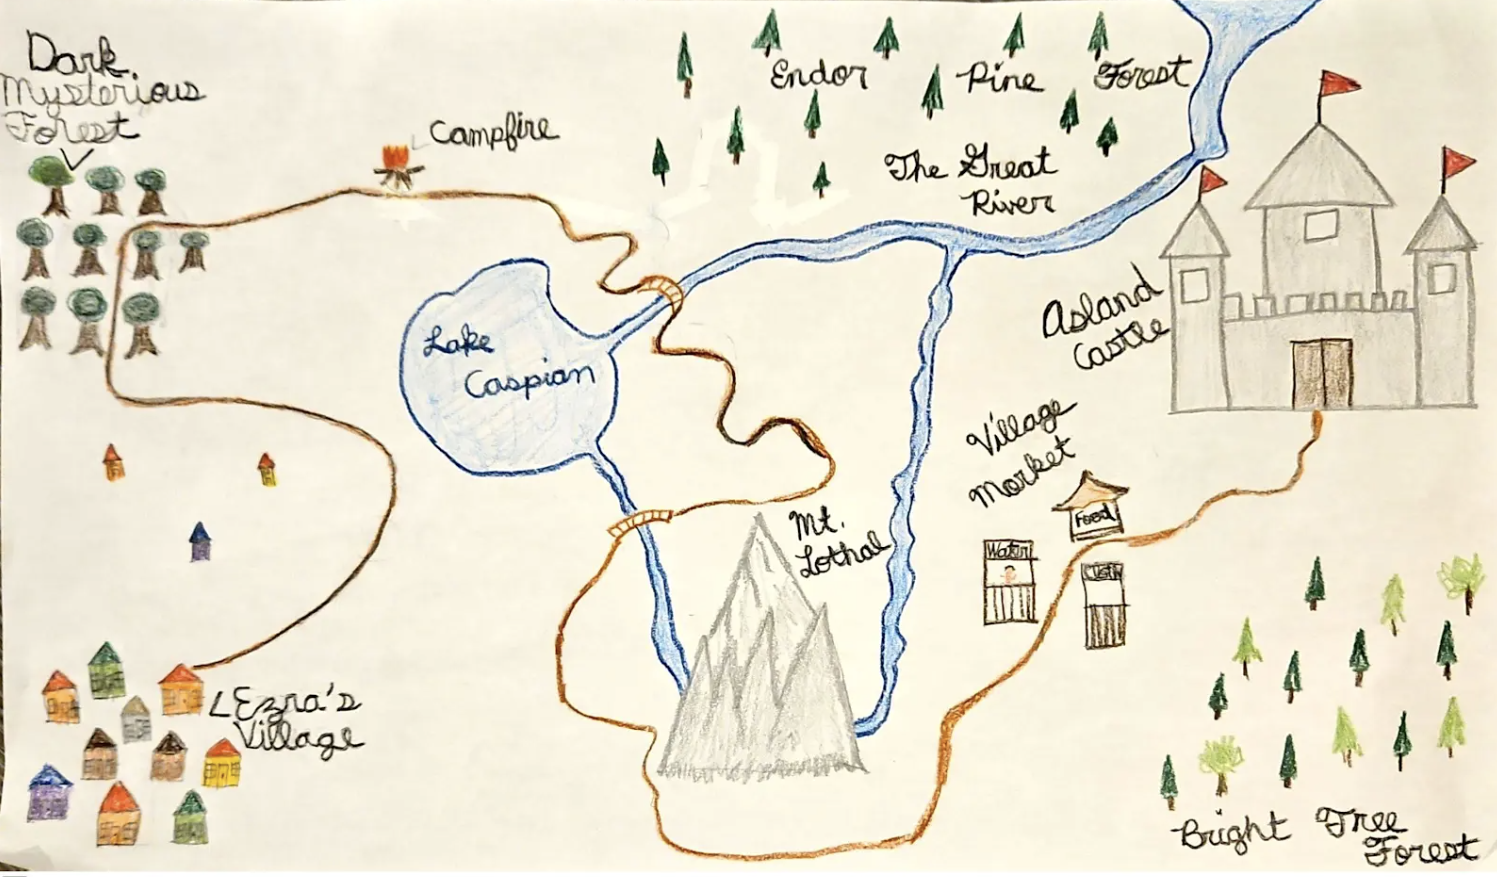 Dark
Mysterious
Forest
Campfire
Endor Pine Forest
The Great
River
Lake
Caspian
Asland
Castle
Village
Market
Food
Water
Mt.
Lothal
Ezra's
Village
Bright Tree
Forest